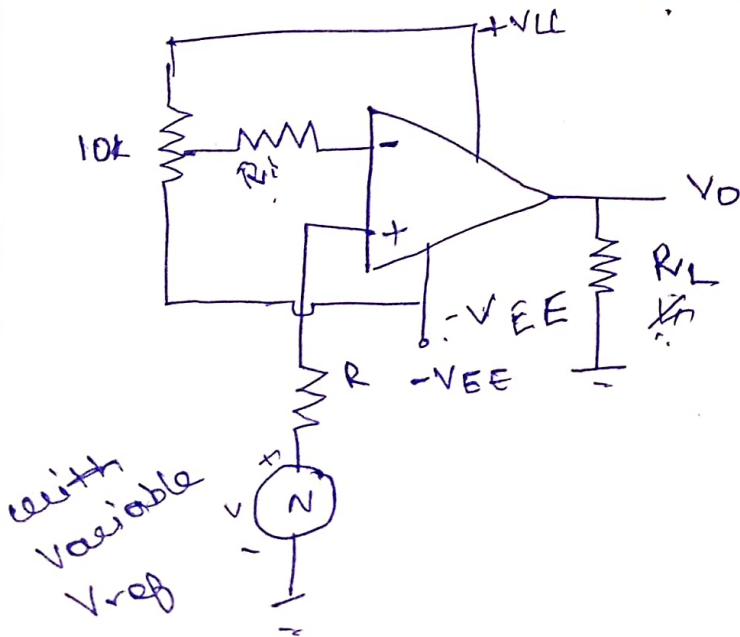 +VCC
10k
Ri
-
VO
+
RL
-VEE
R
-VEE
+
V
-
with
variable
Vref